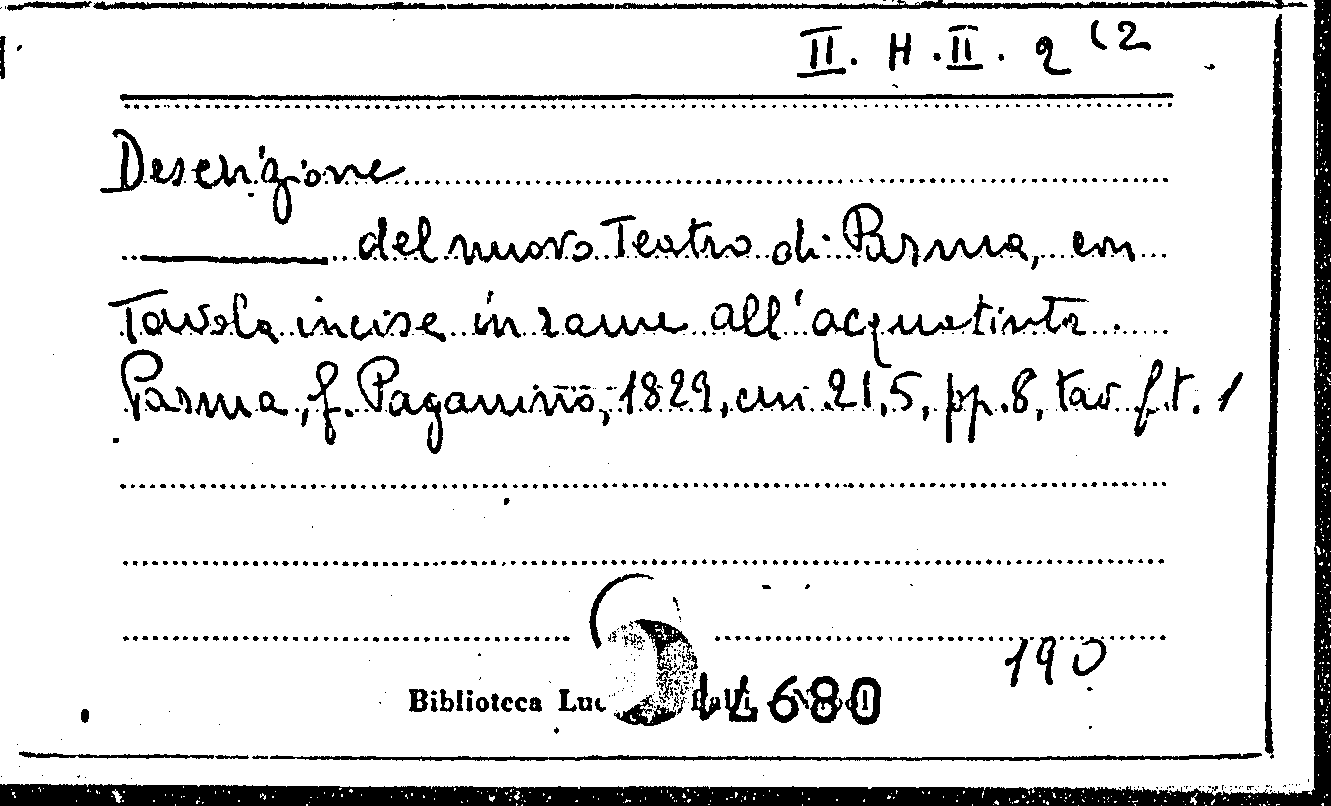 II. H. II. 2 (2
Descrizione
del nuovo Teatro di Parma, con
Tavola incise in rame all'acquatinta.
Parma, f. Paganino, 1829, cm. 21,5, pp. 8, tav f.t. 1
190
Biblioteca